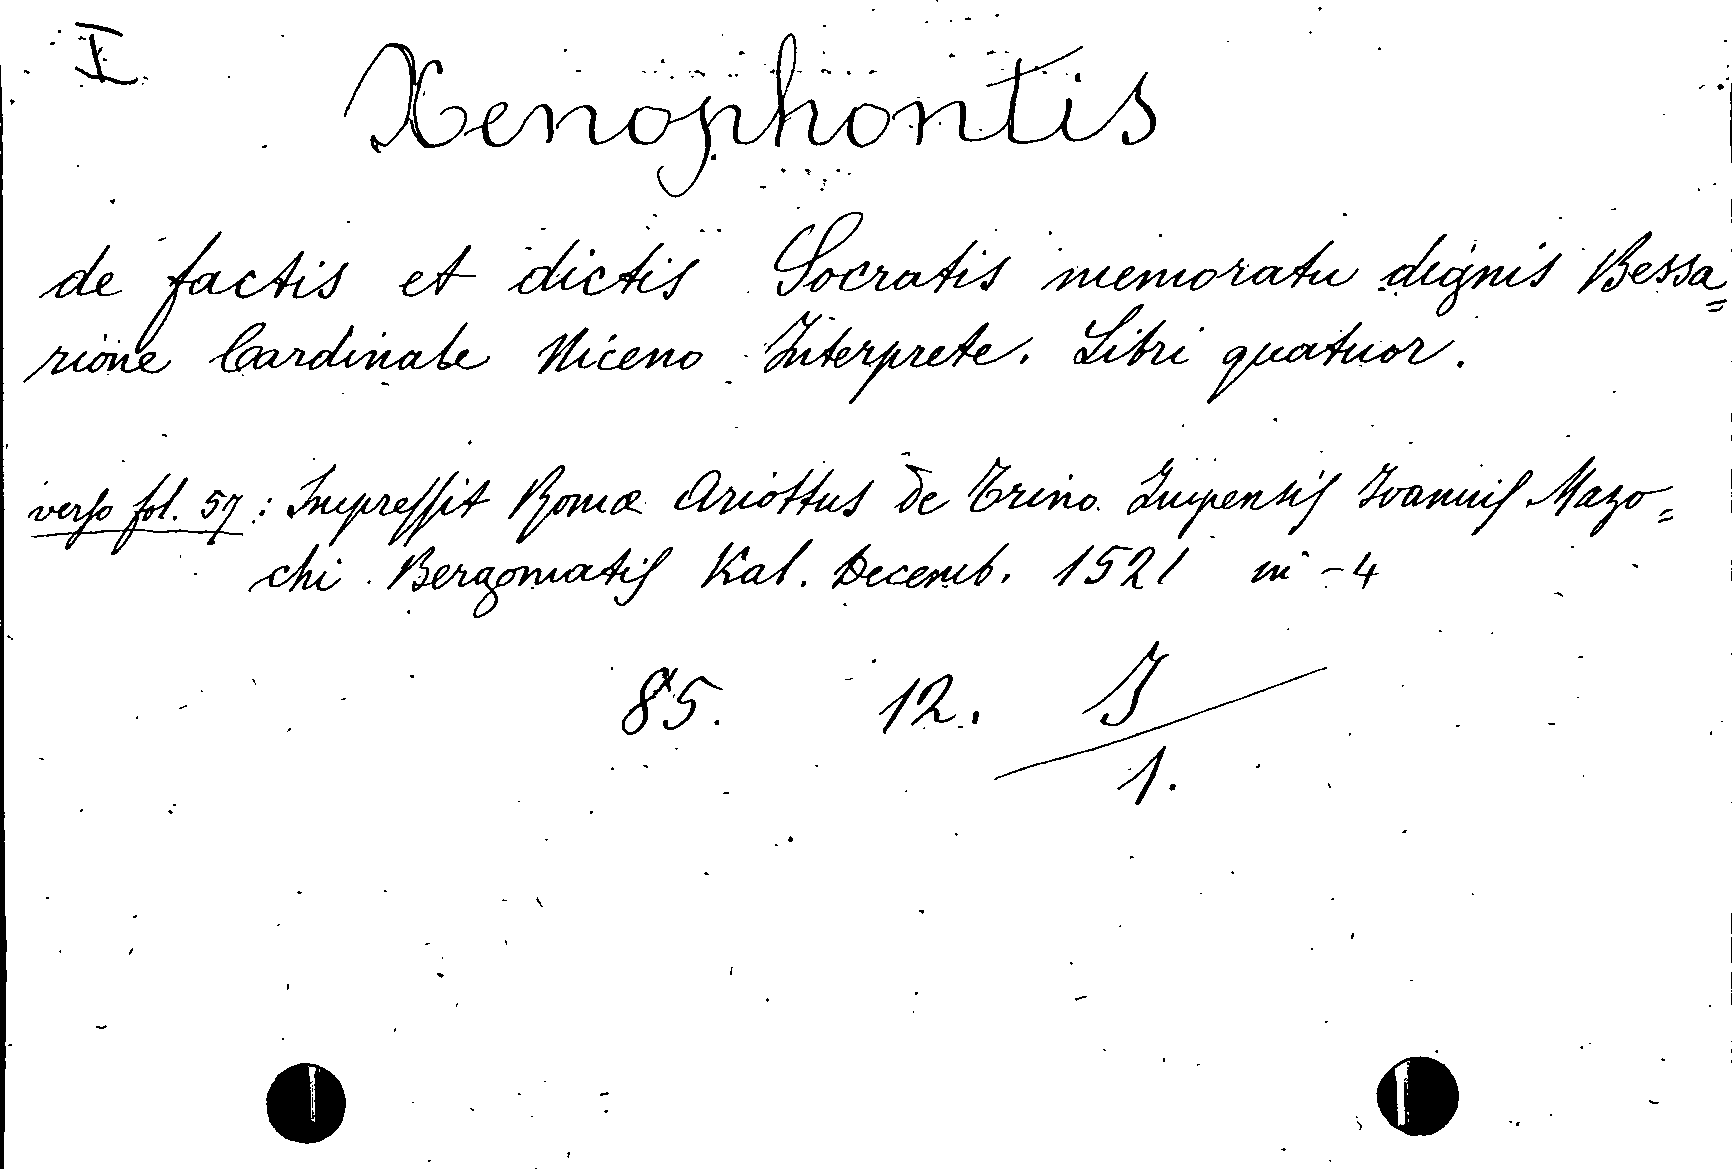 I
Xenophontis
de factis et dictis Socratis memoratu dignis Bessa=
rione Cardinale Niceno Interprete. Libri quatuor.
verso fol. 57: Impressit Romæ Ariottus de Trino. Impensis Ioannis Mazo=
chi Bergomatis Kal. Decemb. 1521 in-4
85. 12. I
1.